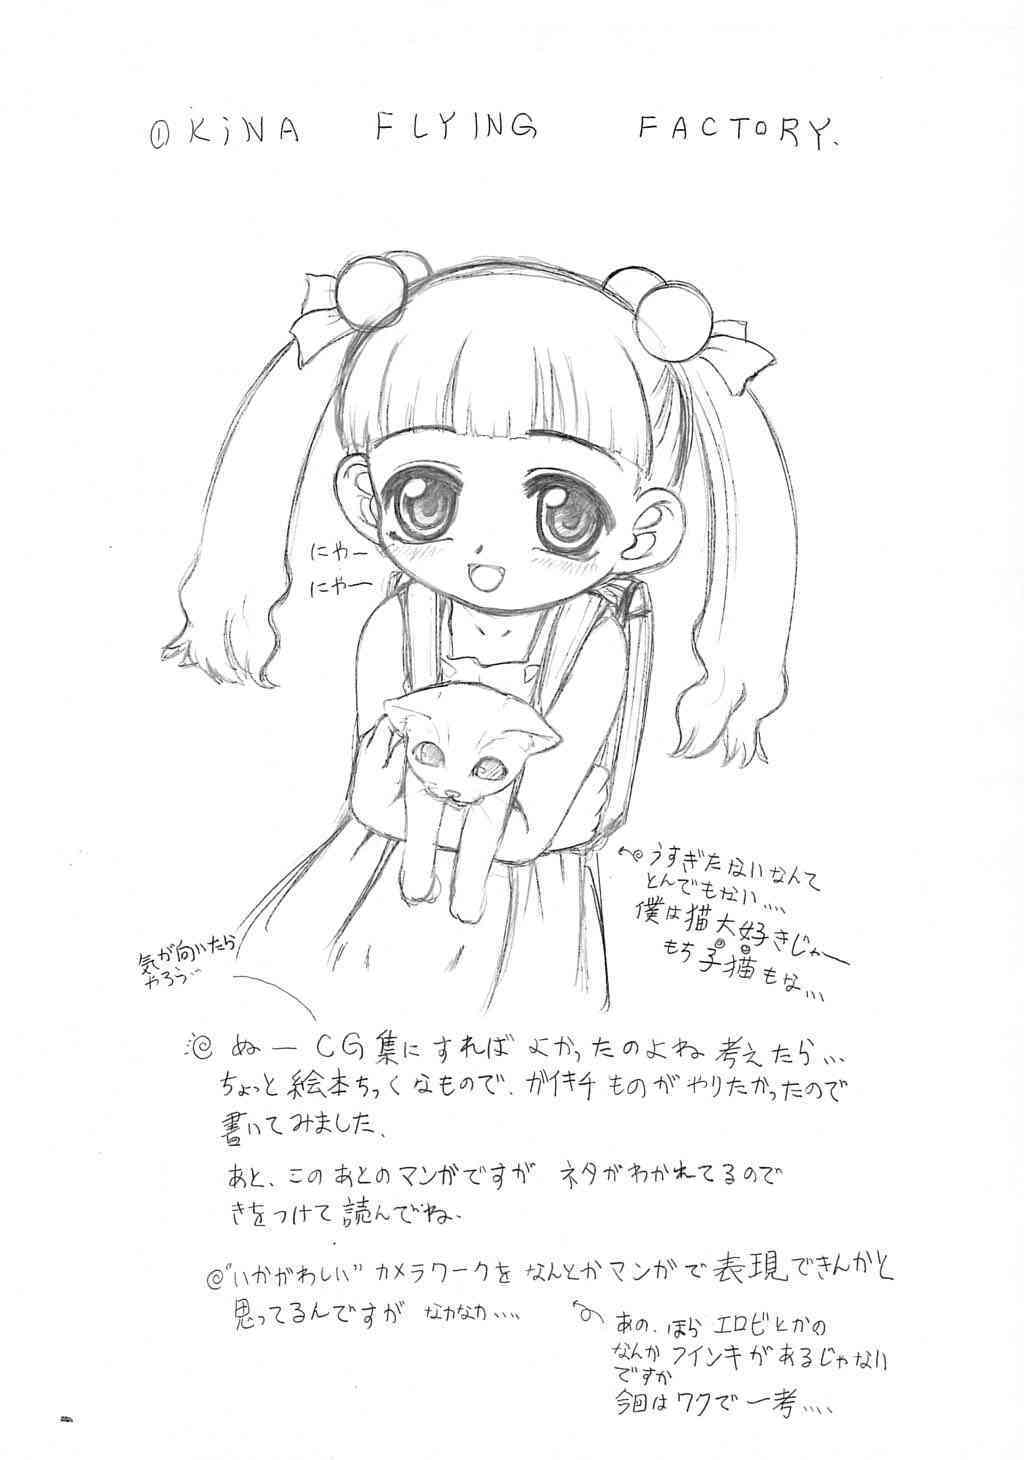 OKiNA FLYING FACTORY.
にゃー
にゃー
うすぎたないなんて
とんでもない....
僕は猫大好きじゃー
もち子猫もな...
気が向いたら
やろう..
ぬー CG集にすればよかったのよね 考えたら...
ちょっと絵本ちっくなもので、ガイキチものがやりたかったので
書いてみました、
あと、このあとのマンガですが ネタがわかれてるので
きをつけて読んでね、
"いかがわしい" カメラワークを なんとかマンガで表現できんかと
思ってるんですが なかなか....
あの、ほら エロビとかの
なんか フインキがあるじゃない
ですか
今回はワクで一考....